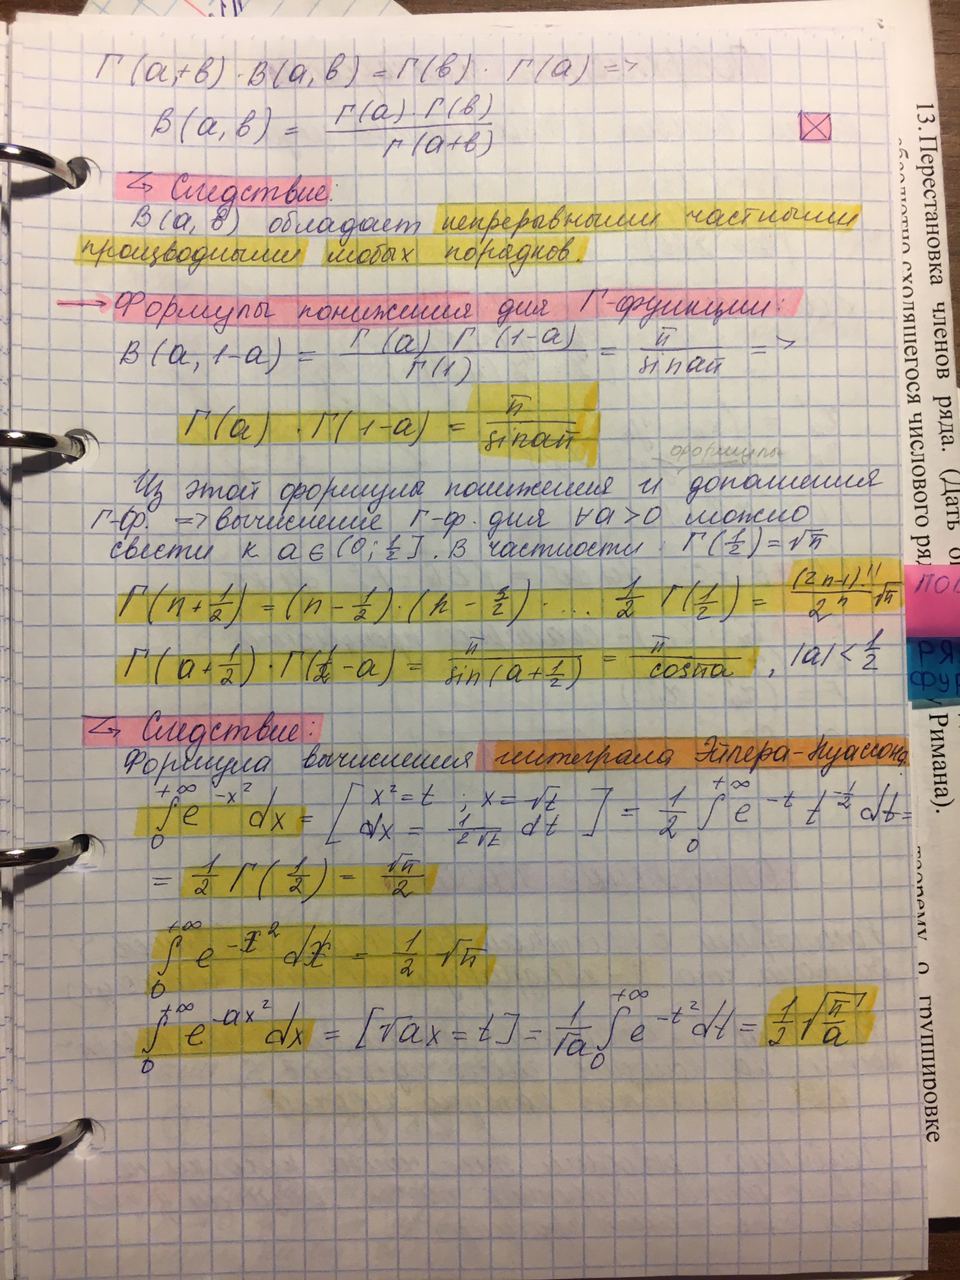 Γ(a+в)·B(a,в) = Γ(в)·Γ(a) =>
B(a,в) = Γ(a)·Γ(в) / Γ(a+в)
↳ Следствие:
B(a,в) обладает непрерывными частными
производными любых порядков.
→ Формулы понижения для Г-функции:
B(a,1-a) = Γ(a) Γ(1-a) / Γ(1) = π / sin aπ =>
Γ(a)·Γ(1-a) = π / sin aπ
формулы
Из этой формулы понижения и дополнения
Г-ф. => вычисление Г-ф. для ∀a>0 можно
свести к a∈(0;1/2]. В частности: Γ(1/2)=√π
Γ(n+1/2) = (n-1/2)·(n-3/2)·... 1/2 Γ(1/2) = (2n-1)!! / 2^n √π
Γ(a+1/2)·Γ(1/2-a) = π / sin(a+1/2) = π / cosπa , |a|<1/2
↳ Следствие:
Формула вычисления интеграла Эйлера-Пуассона
∫₀^{+∞} e^{-x²} dx = [x²=t ; x=√t
dx = 1/(2√t) dt] = 1/2 ∫₀^{+∞} e^{-t} t^{-1/2} dt =
= 1/2 Γ(1/2) = √π / 2
∫₀^{+∞} e^{-x²} dx = 1/2 √π
∫₀^{+∞} e^{-ax²} dx = [√ax=t] = 1/√a ∫₀^{+∞} e^{-t²} dt = 1/2 √(π/a)
13. Перестановка членов ряда. (Дать
сходящегося числового ряд
ПО
РЯ
ФУР
Римана).
теорему о группировке